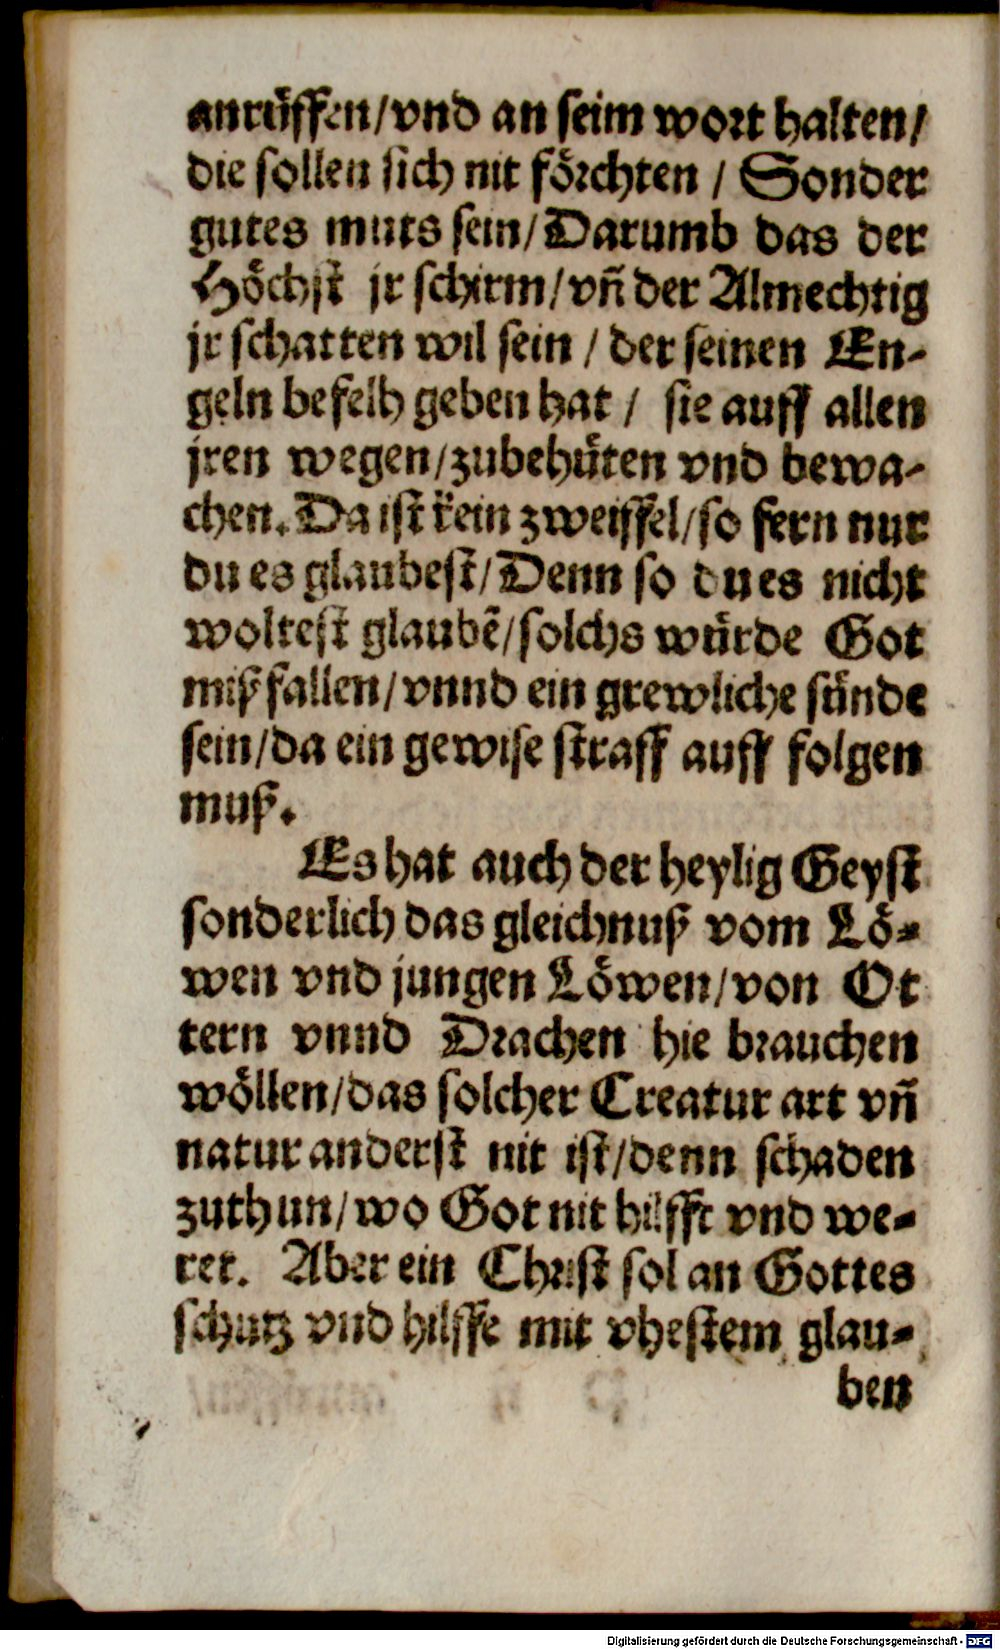 anrůffen/vnd an seim wort halten/
die sollen sich nit förchten / Sonder
gutes muts sein/Darumb das der
Höchst jr schirm/vñ der Almechtig
jr schatten wil sein / der seinen En-
geln befelh geben hat / sie auff allen
jren wegen/zubehüten vnd bewa-
chen. Da ist kein zweiffel/so fern nur
du es glaubest/Denn so du es nicht
woltest glaubē/solchs würde Got
mißfallen/vnnd ein grewliche sünde
sein/da ein gewise straff auff folgen
muß.
Es hat auch der heylig Geyst
sonderlich das gleichnuß vom Lö-
wen vnd jungen Löwen/von Ot
tern vnnd Drachen hie brauchen
wöllen/das solcher Creatur art vñ
natur anderst nit ist/denn schaden
zuthun/wo Got nit hilfft vnd we-
ret. Aber ein Christ sol an Gottes
schutz vnd hilffe mit vhestem glau-
ben
Digitalisierung gefördert durch die Deutsche Forschungsgemeinschaft - DFG